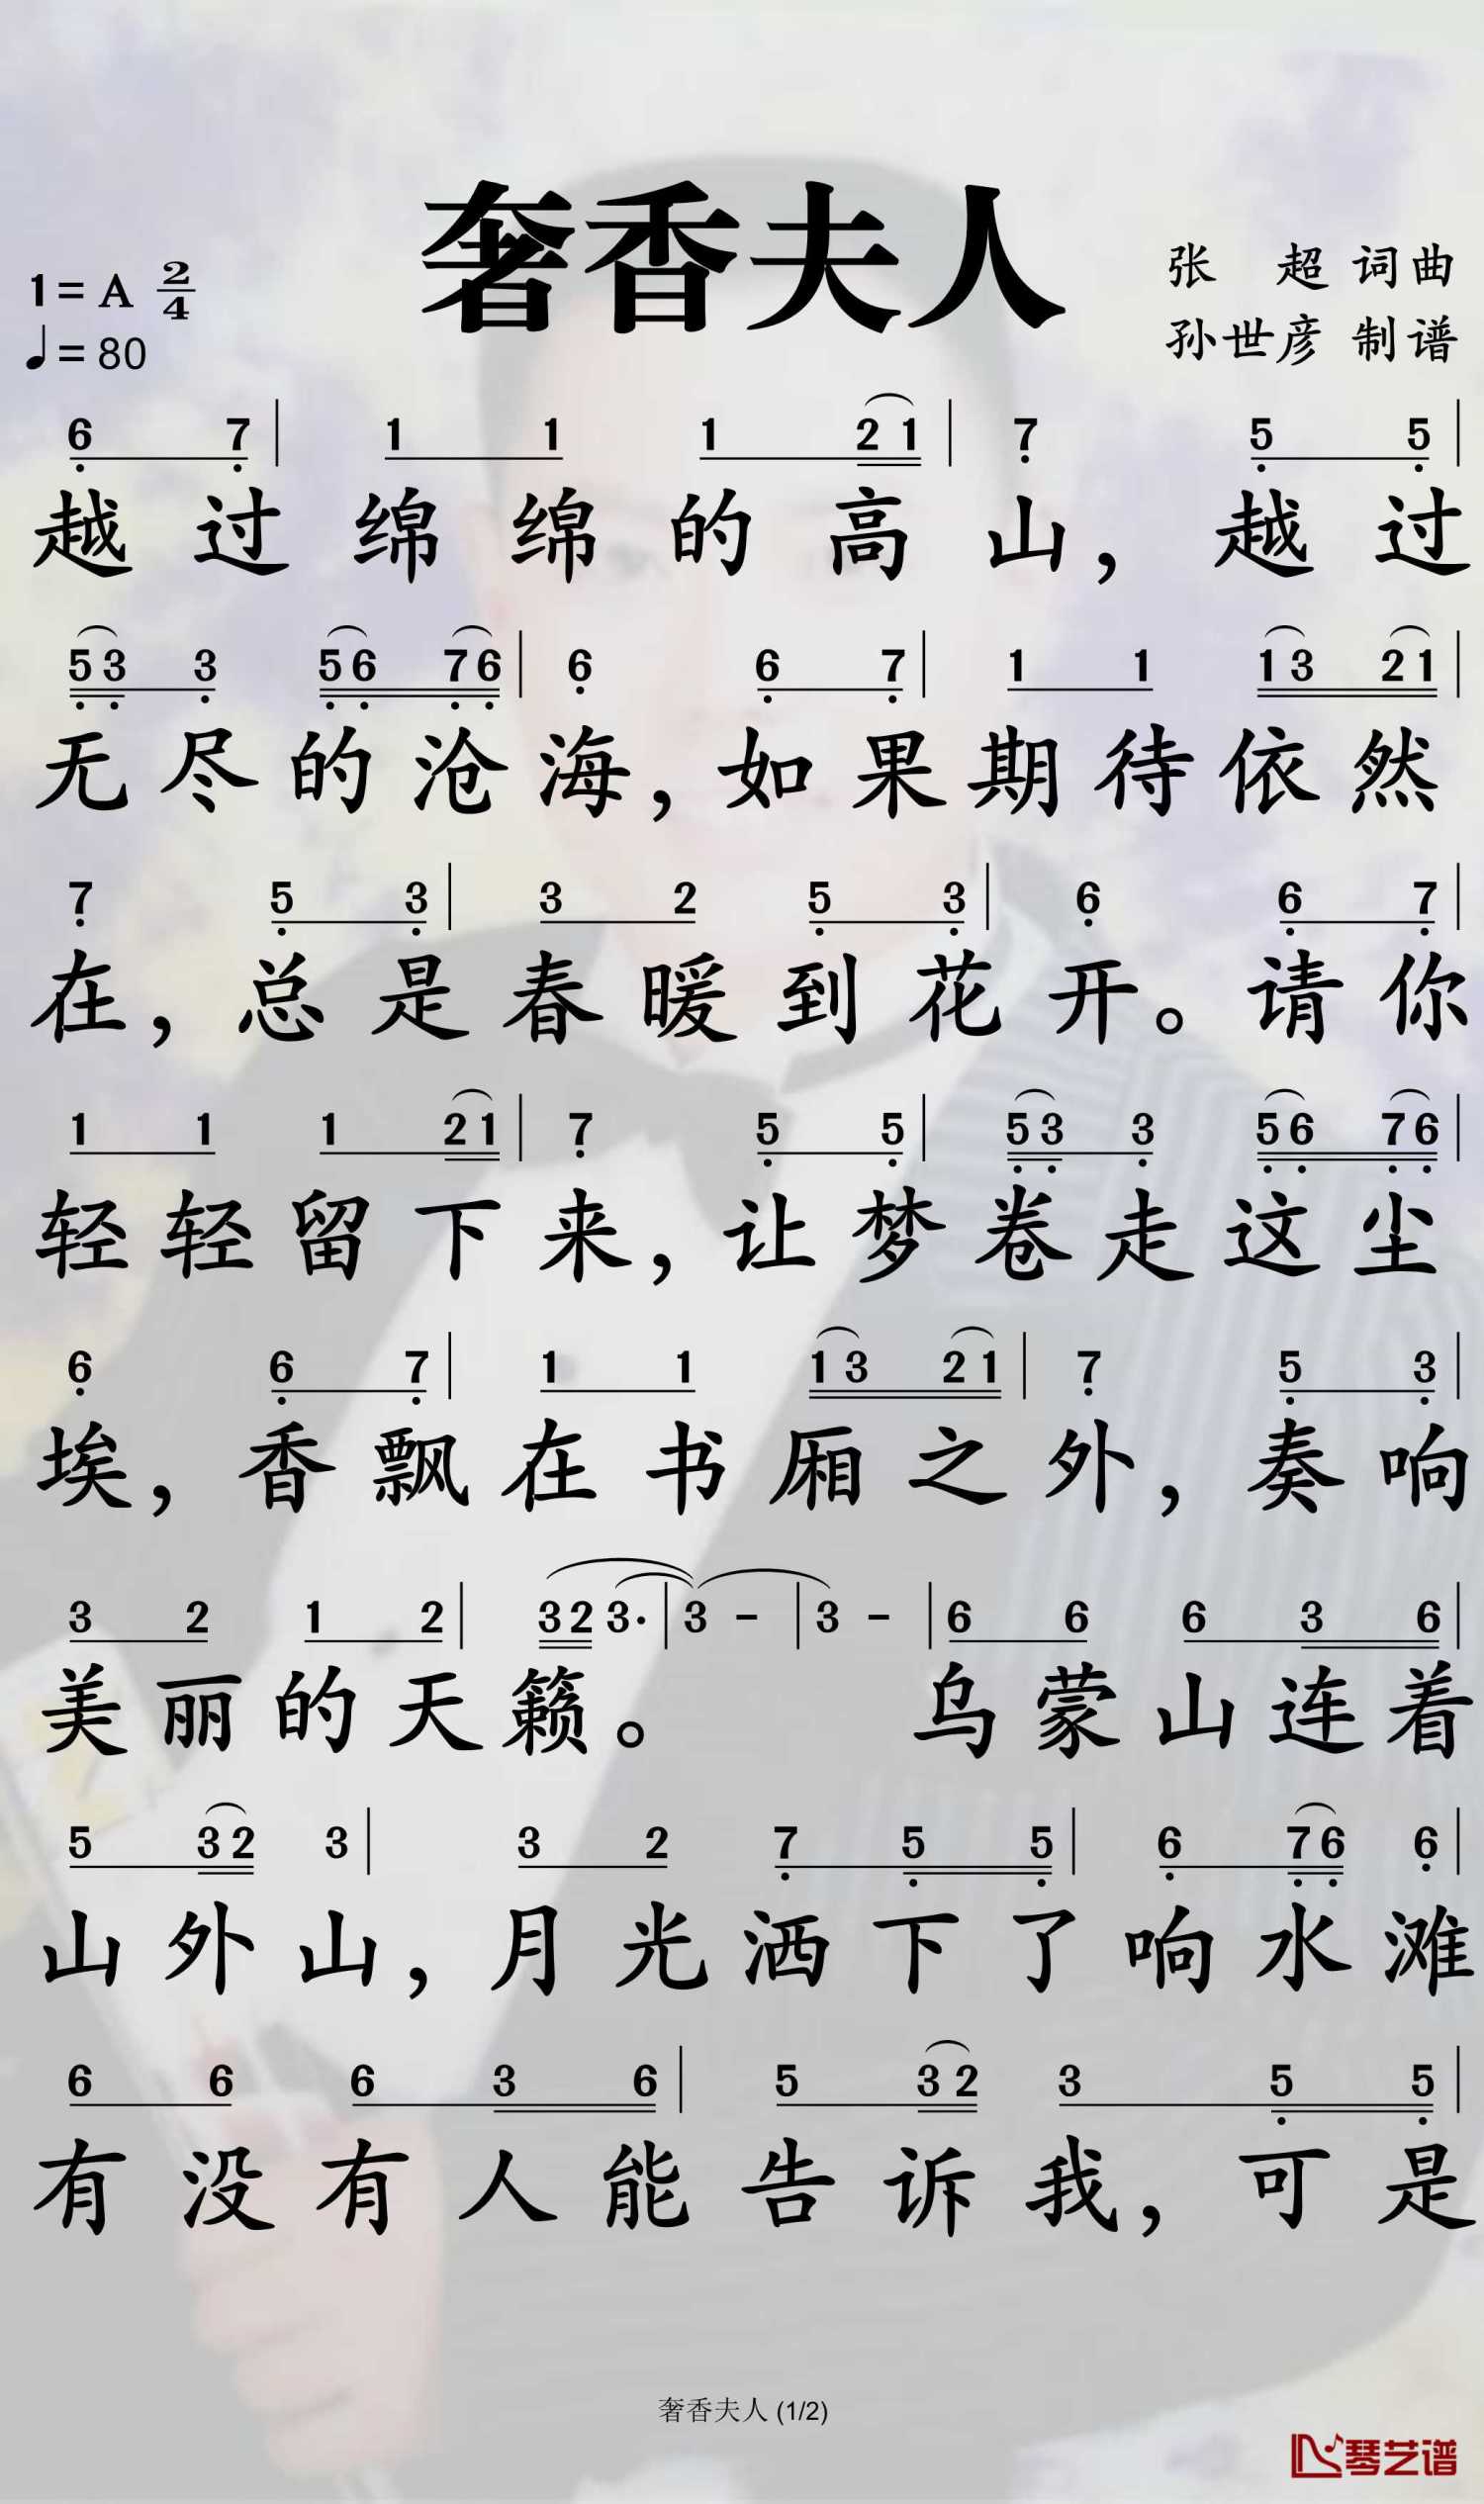 奢香夫人
1=A 2/4
♩=80
张 超 词曲
孙世彦 制谱
6 7 | 1 1 1 2 1 | 7 5 5 |
越过绵绵的高山，越过
5 3 3 5 6 7 6 | 6 6 7 | 1 1 1 3 2 1 |
无尽的沧海，如果期待依然
7 5 3 | 3 2 5 3 | 6 6 7 |
在，总是春暖到花开。请你
1 1 1 2 1 | 7 5 5 | 5 3 3 5 6 7 6 |
轻轻留下来，让梦卷走这尘
6 6 7 | 1 1 1 3 2 1 | 7 5 3 |
埃，香飘在书厢之外，奏响
3 2 1 2 | 3 2 3· | 3 - | 3 - | 6 6 6 3 6 |
美丽的天籁。 乌蒙山连着
5 3 2 3 | 3 2 7 5 5 | 6 7 6 6 |
山外山，月光洒下了响水滩
6 6 6 3 6 | 5 3 2 3 5 5 |
有没有人能告诉我，可是
奢香夫人 (1/2)
琴艺谱